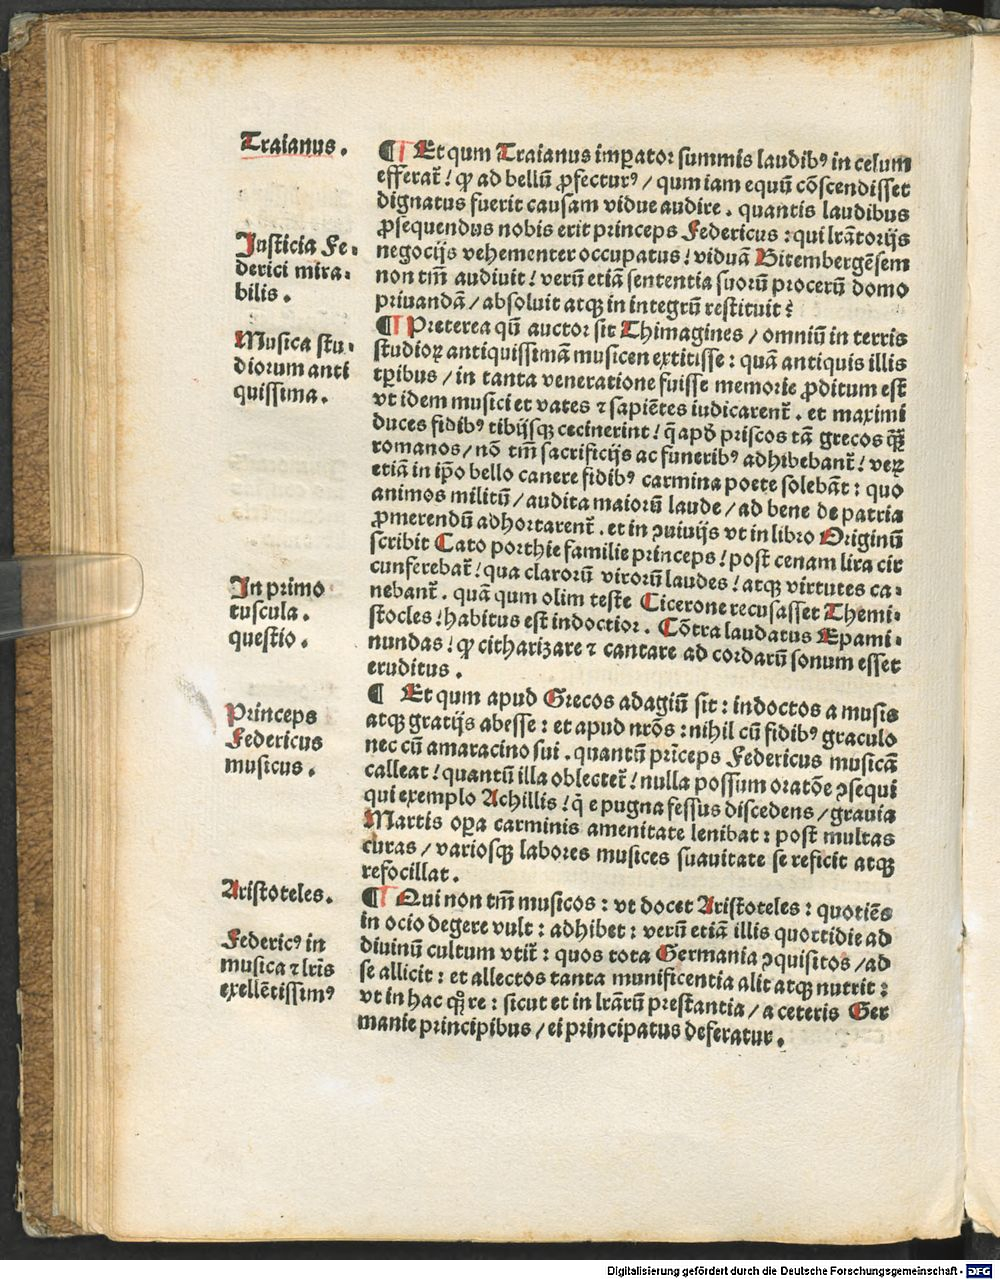 Traianus.
¶ Et qum Traianus imꝑator summis laudibꝰ in celum
efferat᷑! ꝙ ad bellū ꝓfecturꝰ / qum iam equū cōscendisset
dignatus fuerit causam vidue audire. quantis laudibus
ꝓsequendus nobis erit princeps Federicus: qui lrātorijs
negocijs vehementer occupatus! viduā Bitembergēsem
non tm̄ audiuit! verū etiā sententia suorū procerū domo
priuandā / absoluit atqꝫ in integrū restituit?
Iusticia Fe-
derici mira-
bilis.
¶ Preterea qū auctor sit Thimagines / omniū in terris
studioꝝ antiquissimā musicen extitisse: quā antiquis illis
tꝑibus / in tanta veneratione fuisse memorie ꝓditum est
vt idem musici et vates ⁊ sapiētes iudicarent᷑. et maximi
duces fidibꝰ tibijsqꝫ cecinerint! q̄ apđ priscos tā grecos q̄ꝫ
romanos / nō tm̄ sacrificijs ac funeribꝰ adhibebant᷑! veꝝ
etiā in ip̄o bello canere fidibꝰ carmina poete solebāt: quo
animos militū / audita maiorū laude / ad bene de patria
ꝓmerendū adhortarent᷑. et in ꝯuiuijs vt in libro Originū
scribit Cato porthie familie princeps! post cenam lira cir
cunferebat᷑! qua clarorū virorū laudes! atqꝫ virtutes ca-
nebant᷑. quā qum olim teste Cicerone recusasset Themi-
stocles! habitus est indoctior. Cōtra laudatus Epami-
nundas! ꝙ citharizare ⁊ cantare ad cordarū sonum esset
eruditus.
Musica stu-
diorum anti
quissima.
In primo
tuscula.
questio.
¶ Et qum apud Grecos adagiū sit: indoctos a musis
atqꝫ gratijs abesse: et apud nr̄os: nihil cū fidibꝰ graculo
nec cū amaracino sui. quantū prīceps Federicus musicā
calleat! quantū illa oblectet᷑! nulla possum oratōe ꝯsequi
qui exemplo Achillis! q̇ e pugna fessus discedens / grauia
Martis oꝑa carminis amenitate lenibat: post multas
curas / variosqꝫ labores musices suauitate se reficit atqꝫ
refocillat.
Princeps
Federicus
musicus.
¶ Qui non tm̄ musicos: vt docet Aristoteles: quotiēs
in ocio degere vult: adhibet: verū etiā illis quottidie ad
diuinū cultum vtit᷑: quos tota Germania ꝯquisitos / ad
se allicit: et allectos tanta munificentia alit atqꝫ nutrit:
vt in hac qq̄ꝫ re: sicut et in lrārū prestantia / a ceteris Ger
manie principibus / ei principatus deferatur.
Aristoteles.
Federicꝰ in
musica ⁊ lr̄is
exellētissimꝰ